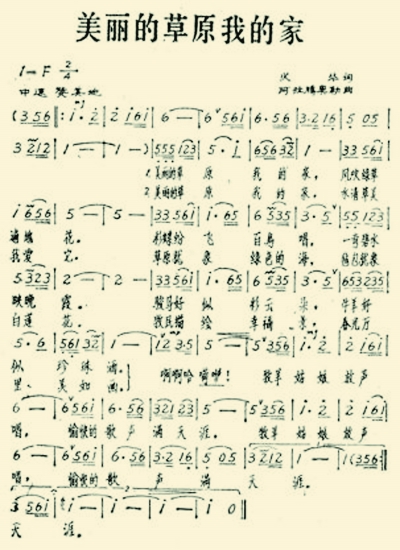 美丽的草原我的家
1=F 2/4
火 华 词
中速 赞美地 阿拉腾奥勒曲
(3 56 5 ‖: i · 2 | 2 i6i | 6 — | 6 56i | 6·56 | 3·2 16 | 5 05 |
3 212 | 1 — | 1 — ) | 555 123 | 5 · 5 | 656 32 | 1 — | 33 565 |
1.美丽的草 原 我 的 家, 风吹绿草
2.美丽的草 原 我 的 家, 水清草美
i 656 | 5 — | 5 — | 33 56i | i · 65 | 6 535 | 3 · 5 | 55 123 |
遍地 花。 彩蝶纷 飞 百鸟 唱, 一弯碧水
我爱 它。 草原就 象 绿色的 海, 毡包就象
5 323 | 2 — | 2 — | 33 561 | 1 · 65 | 6 535 | 3 · 5 | 653 235 |
映晚 霞。 骏马好 似 彩云 朵, 牛羊好
白莲 花。 牧民描 绘 幸福 景, 春光万
5 · 6 | 561 32 | 1 — | 12 3·5 | 5 — | 5 356 | i · 2 | 2 i6i |
似 珍珠 洒。 啊啊哈 嗬咿! 牧羊 姑娘 放声
里 美如 画。
6 — | 6 56i | 6·56 | 321 223 | 5 — | 5 356 | i · 2 | 2 i6i |
唱, 愉快的 歌声 满天 涯。 牧羊 姑娘 放声
6 — | 6 56i | 6·56 | 3·2 16 | 5 · 5 | 3 212 | 1 — | 1 (356 :‖
唱, 愉快的 歌 声 满 天 涯。
3 56i | i — | i — | i — | i 0 ‖
天 涯。